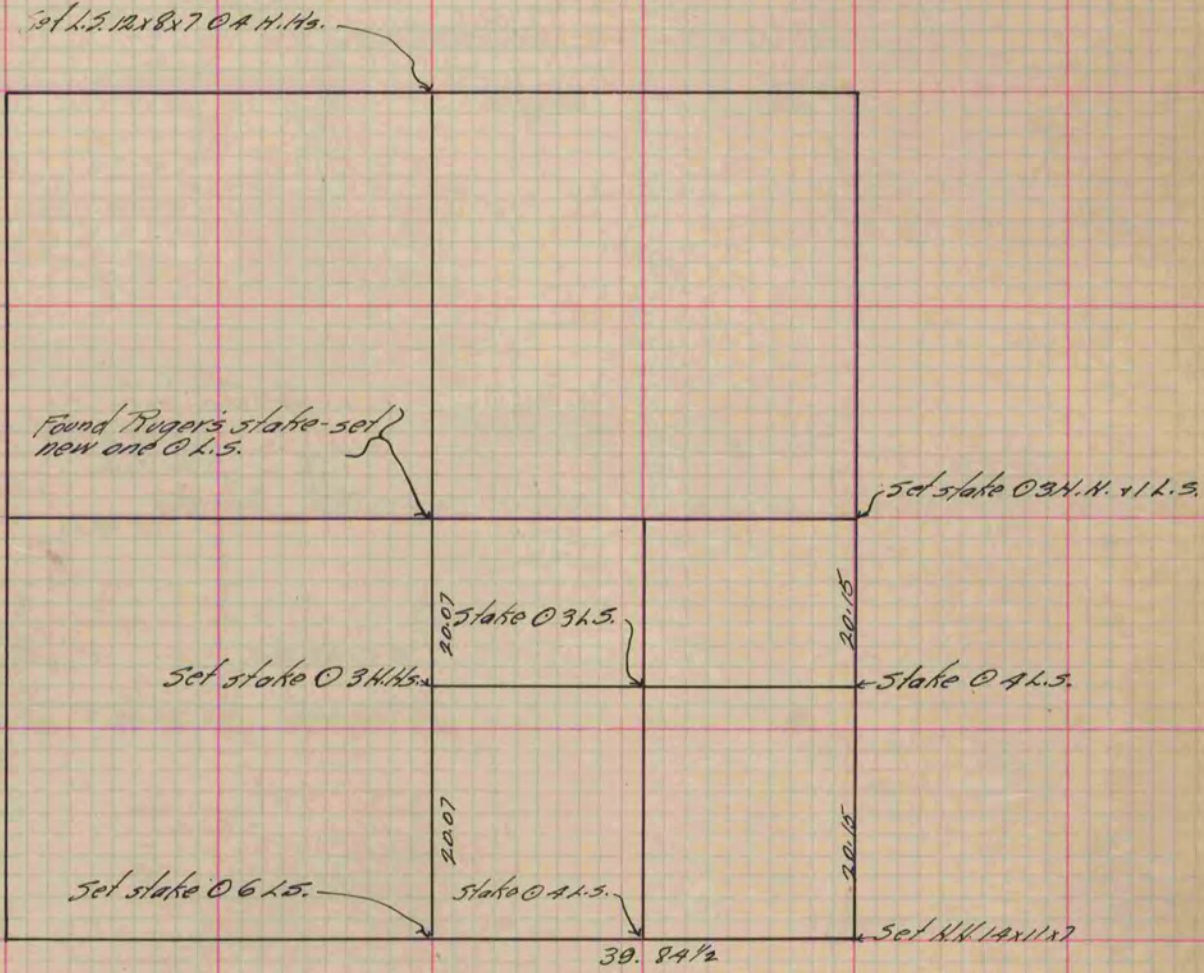 Set L.S. 12x8x7 ⊙ 4 H.Hs.
Found Ruger's stake - set
new one ⊙ L.S.
Set stake ⊙ 3 H.H. & 1 L.S.
20.07
Stake ⊙ 3 L.S.
20.15
Set stake ⊙ 3 H.Hs.
Stake ⊙ 4 L.S.
20.07
20.15
Set stake ⊙ 6 L.S.
Stake ⊙ 4 L.S.
Set H.H. 14x11x7
39.84½